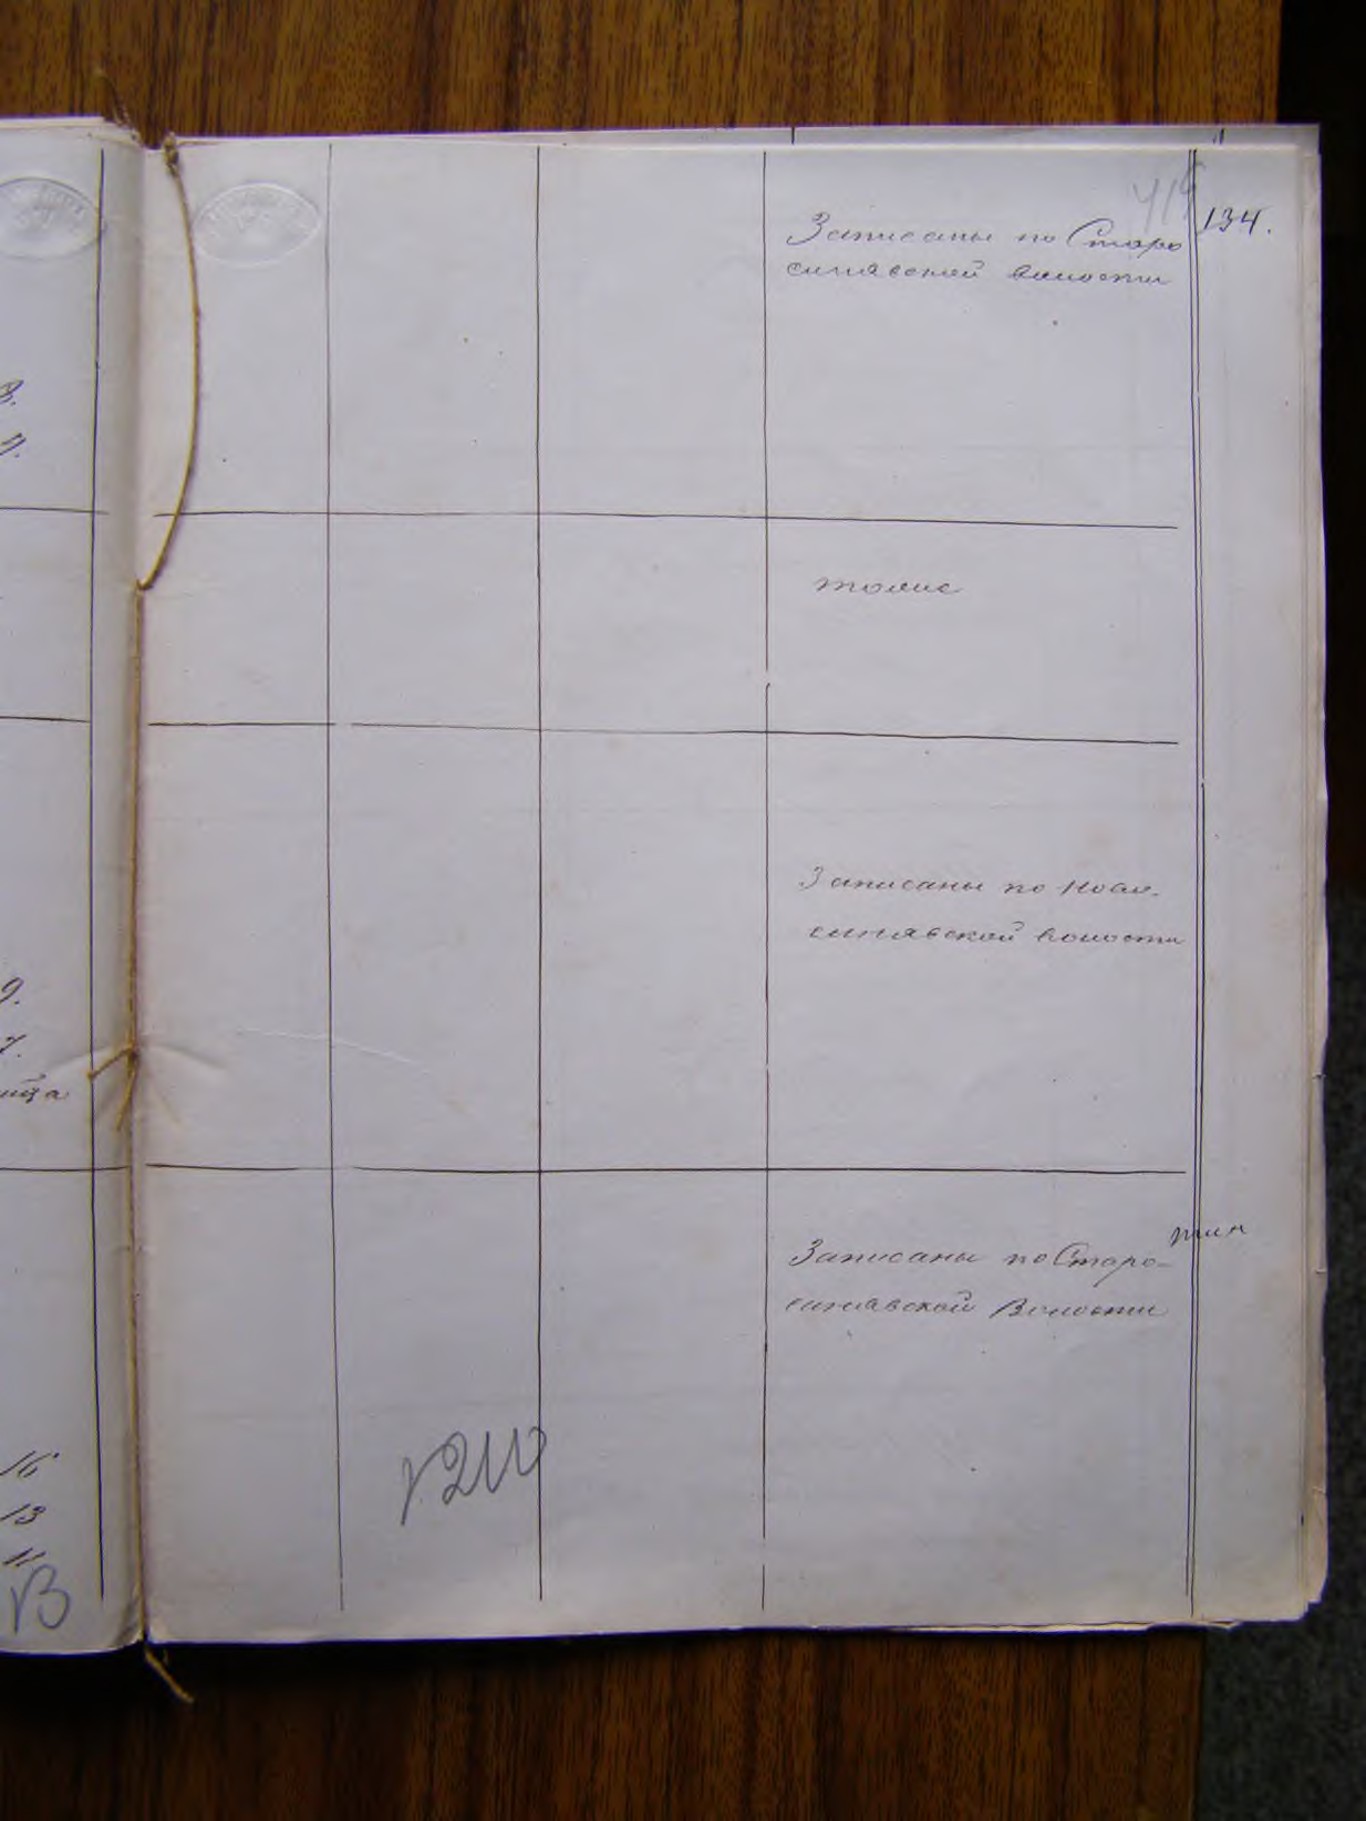 134.
Записаны по Старо
синявской волости
тоже
Записаны по Ново-
синявской волости
Записаны по Старо-
синявской Волости
9.
7.
16
13
11